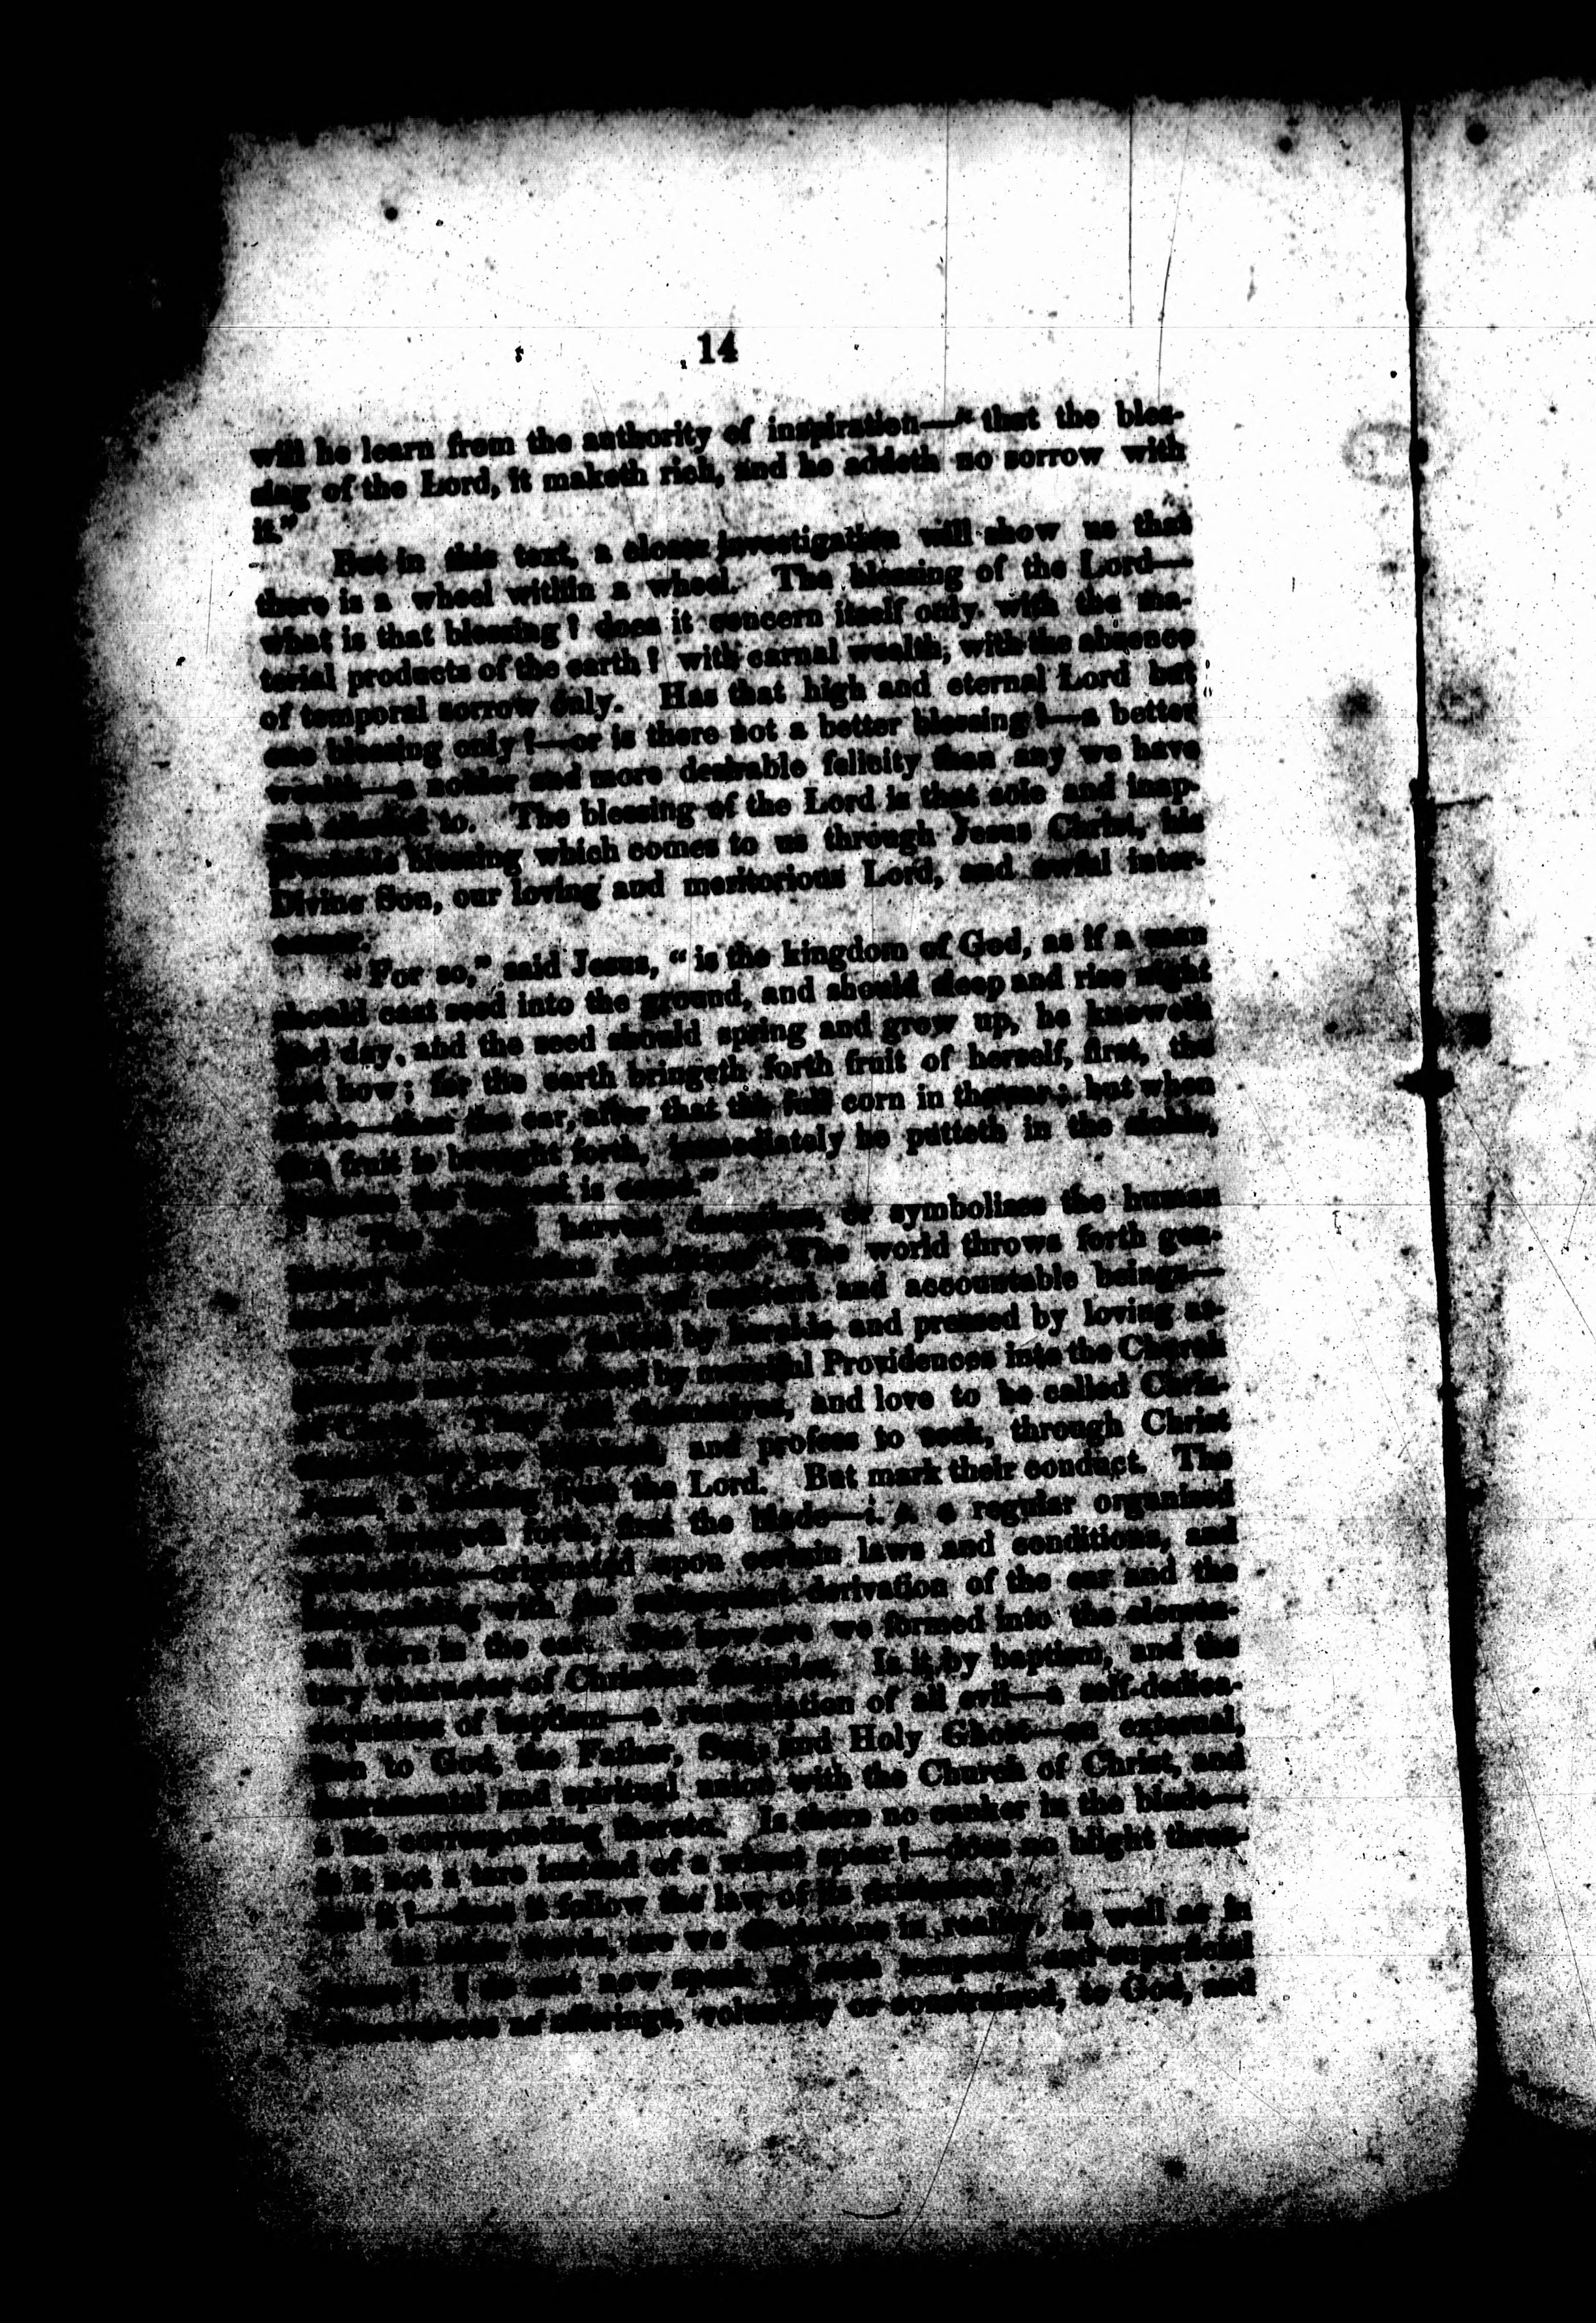 14
will he learn from the authority of inspiration—“that the bles-
sing of the Lord, it maketh rich, and he addeth no sorrow with
it.”
But in this text, a closer investigation will show us that
there is a wheel within a wheel. The blessing of the Lord—
what is that blessing? does it concern itself only with the ma-
terial products of the earth? with carnal wealth, with the absence
of temporal sorrow only. Has that high and eternal Lord but
one blessing only?—or is there not a better blessing?—a better
wealth—a nobler and more desirable felicity than any we have
yet to. The blessing of the Lord is that sole and inap-
blessing which comes to us through Jesus Christ, his
Divine Son, our loving and meritorious Lord, and awful inter-
cessor.
“For so,” said Jesus, “is the kingdom of God, as if a man
should cast seed into the ground, and should sleep and rise night
and day, and the seed should spring and grow up, he knoweth
not how; for the earth bringeth forth fruit of herself, first, the
blade—then the ear, after that the full corn in the ear; but when
the fruit is brought forth, immediately he putteth in the sickle,
is
The harvest describes, or symbolizes the human
The world throws forth gen-
and accountable beings—
by heralds and pressed by loving
by merciful Providences into the Church
themselves, and love to be called Chris-
and profess to seek, through Christ
Jesus, a blessing from the Lord. But mark their conduct. The
bringeth forth, first the blade—i. e. a regular organized
—originated upon certain laws and conditions, and
with the subsequent derivation of the ear and the
full corn in the ear. But how are we formed into the elemen-
tary character of Christian disciples. Is it by baptism, and the
requisites of baptism—a renunciation of all evil—a self-dedica-
tion to God, the Father, Son, and Holy Ghost—an external,
sacramental and spiritual union with the Church of Christ, and
a life corresponding thereto. Is there no canker in the blade—
is it not a tare instead of a wheat spear?—does no blight threa-
ten it?—does it follow the law of its existence?
In other words, are we Christians in reality, as well as in
I do not now speak of such temporal and superficial
of offerings, voluntary or constrained, to God, and